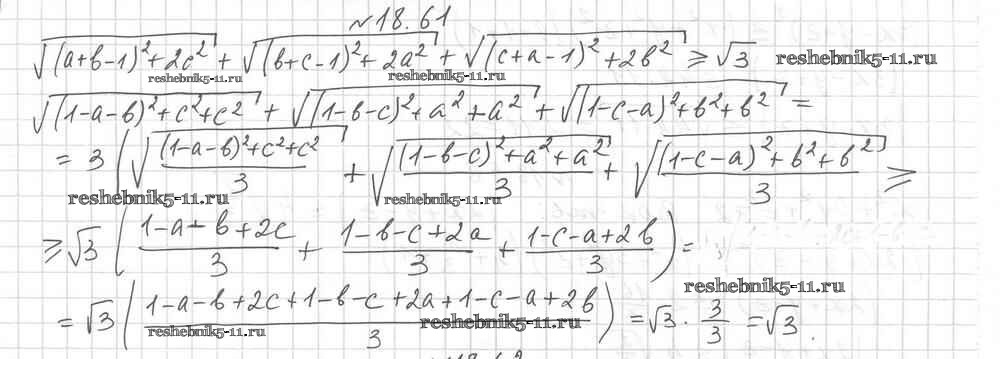 №18.61
√((a+b-1)²+2c²) + √((b+c-1)²+2a²) + √((c+a-1)²+2b²) ≥ √3 reshebnik5-11.ru
reshebnik5-11.ru reshebnik5-11.ru
√((1-a-b)²+c²+c²) + √((1-b-c)²+a²+a²) + √((1-c-a)²+b²+b²) =
= 3 (√(((1-a-b)²+c²+c²)/3) + √(((1-b-c)²+a²+a²)/3) + √(((1-c-a)²+b²+b²)/3) ≥
reshebnik5-11.ru reshebnik5-11.ru
≥ √3 ((1-a-b+2c)/3 + (1-b-c+2a)/3 + (1-c-a+2b)/3) =
reshebnik5-11.ru
= √3 ((1-a-b+2c+1-b-c+2a+1-c-a+2b)/3) = √3 · 3/3 = √3.
reshebnik5-11.ru reshebnik5-11.ru